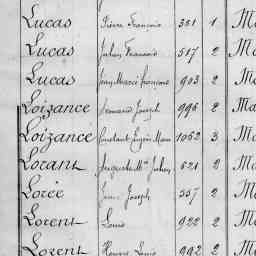 Lucas Pierre François 381 1 Ma
Lucas Julien François 517 2 Ma
Lucas Jean Marie François 903 2 Ma
Loizance Armand Joseph 996 2 Ma
Loizance Constant Eugène Marie 1052 3 Ma
Lorant Auguste Mie Julien 621 2 Ma
Lorée Jean Joseph 337 2 Ma
Lorent Louis 922 2 Ma
Lorent Henry Louis 992 2 Ma